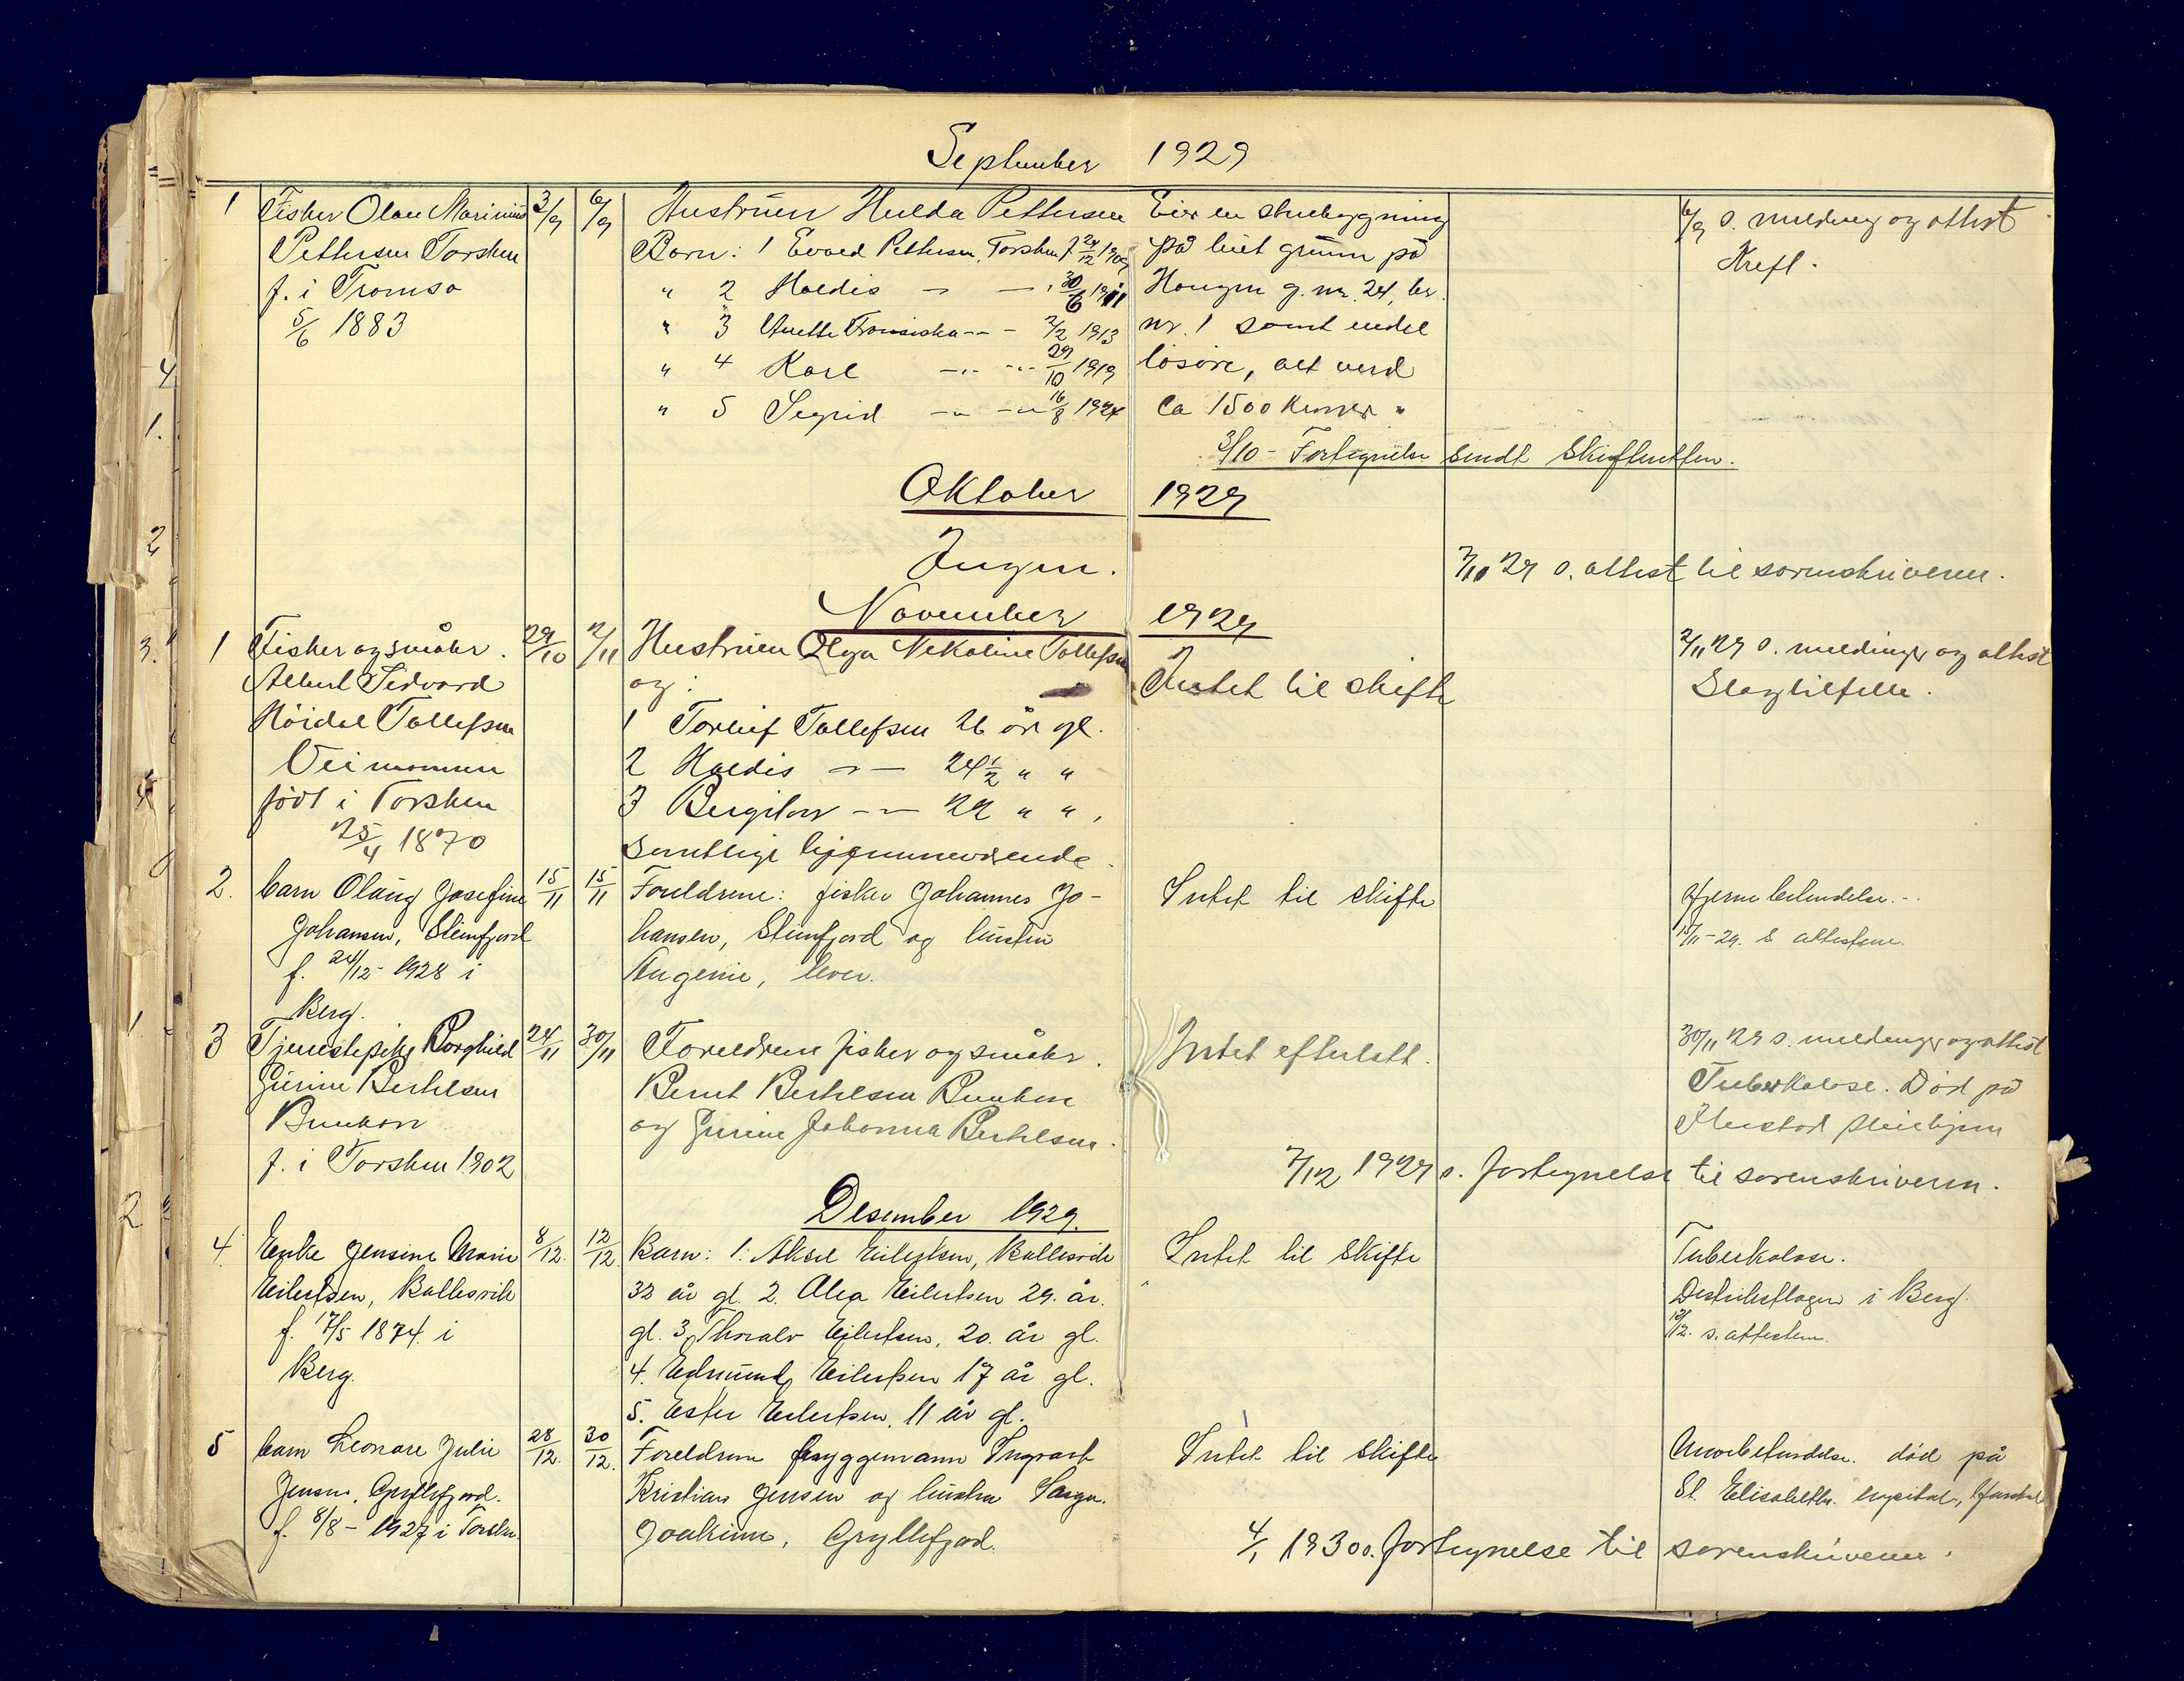 September 1929
1 Fisker Olau Marinius 3/9 6/9 Hustruen Hulda Pettersen Eier en stuebygning 6/9 s. melding og attest
Pettersen Torsken Barn: 1 Evald Pettersen, Torsken f 24/12 1909 på leiet grunn på Kreft.
f. i Tromsø " 2 Haldis — — " 30/6 1911 Haugen g. nr. 24, br.
5/6 1883 " 3 Anette Fransiska — - 2/2 1913 nr. 1 samt endel
" 4 Karl —"— —"— 29/10 1919 løsøre, alt verd
" 5 Sigrid —"— —"— 16/8 1924 Ca 1500 Kroner "
3/10 - Fortegnelse sendt Skifteretten.
Oktober 1929
Ingen. 7/10 29 s. attest til sorenskriveren.
November 1929
1 Fisker og småbr. 29/10 2/11 Hustruen Olga Nekoline Tollefsen Intet til skifte 2/11 29 s. meldinger og attest
Albert Sedvard og: Slagtilfelle.
Høidal Tollefsen 1 Torleif Tollefsen 26 år gl.
Veimannen 2 Haldis — — 24 1/2 " "
født i Torsken 3 Bergitor — — 22 " ",
25/4 1870 samtlige hjemmeværende.
2. barn Olaug Josefine 15/11 15/11 Foreldrene: fisker Johannes Jo- Intet til skifte Hjernebetendelse. -
Johansen, Steinfjord hansen, Steinfjord og hustru 15/11 - 29. s attesten.
f. 24/12 - 1928 i Eugenie, lever.
Berg.
3 Tjenestepike Borghild 24/11 30/11 Foreldrene fisker og småbr. Intet efterlatt. 30/11 29 s. meldinger og attest
Gurine Berthelsen Bernt Berthelsen Bunkan Tuberkolose. Død på
Bunkan og Gurine Johanna Berthelsen. pleiehjem
f. i Torsken 1902
7/12 1929 s. fortegnelse til sorenskriveren.
Desember 1929.
4. Enke Jensine Marie 8/12. 12/12. Barn: 1. Aksel Eilertsen, Ballesvik Intet til skifte Tuberkolose.
Eilertsen, Ballesvik 32 år gl. 2. Alea Eilertsen 29. år. Distriktslægen i Berg.
f. 17/5 1874. i gl. 3, Thoralv Eilertsen, 20. år gl. 12/12. s. attesten.
Berg. 4. Edmund Eilertsen 17 år gl.
5. Ester Eilertsen, 11 år gl.
5 barn Leonore Julie 28/12. 30/12. Foreldrene bryggemann Ingvart Intet til skifte død på
Jensen, Gryllefjord. Kristian Jensen og hustru St. Elisabeth. hospital, Harstad
f. 8/8 - 1927 i Torsken. Joakime, Gryllefjord.
4/1 1930 s. fortegnelse til sorenskriveren.
4
1.
2
3.
4
1.
2